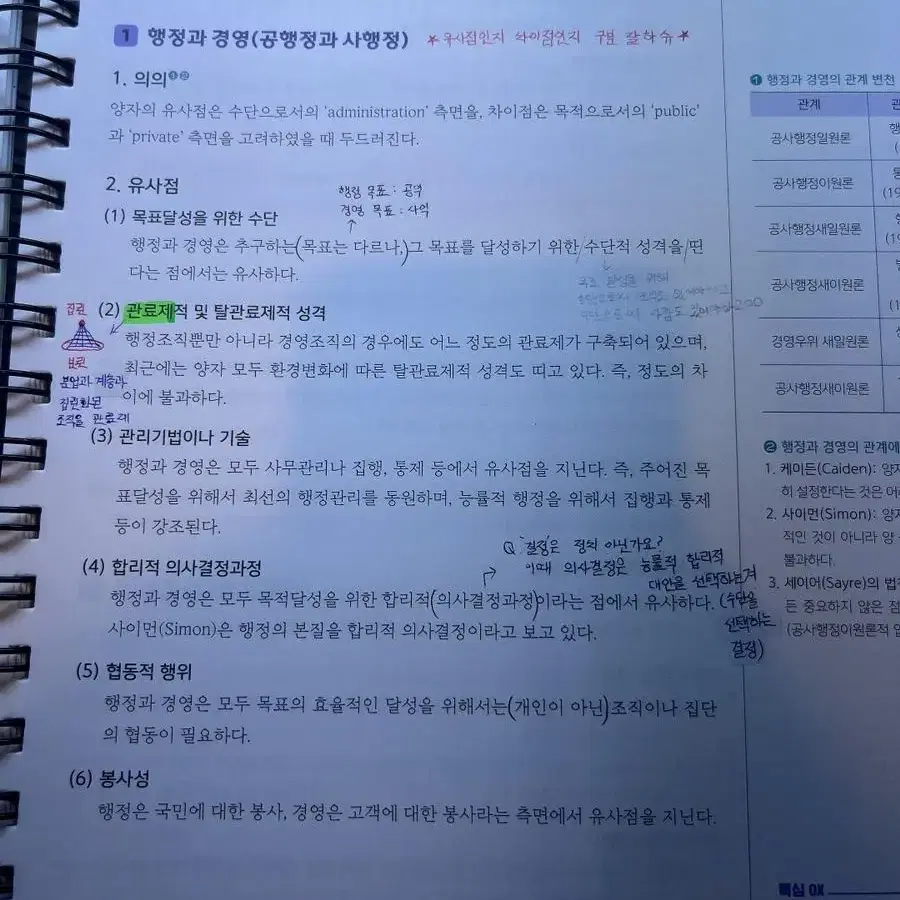 1 행정과 경영(공행정과 사행정) ★유사점인지 차이점인지 구분 잘하슈★
1. 의의❶❷
양자의 유사점은 수단으로서의 'administration' 측면을, 차이점은 목적으로서의 'public'
과 'private' 측면을 고려하였을 때 두드러진다.
2. 유사점
행정 목표 : 공익
경영 목표 : 사익
(1) 목표달성을 위한 수단
행정과 경영은 추구하는(목표는 다르나,)그 목표를 달성하기 위한/수단적 성격을/띤
다는 점에서는 유사하다.
(2) 관료제적 및 탈관료제적 성격
행정조직뿐만 아니라 경영조직의 경우에도 어느 정도의 관료제가 구축되어 있으며,
최근에는 양자 모두 환경변화에 따른 탈관료제적 성격도 띠고 있다. 즉, 정도의 차
이에 불과하다.
분업과 계층과
집권화된
조직을 관료제
(3) 관리기법이나 기술
행정과 경영은 모두 사무관리나 집행, 통제 등에서 유사점을 지닌다. 즉, 주어진 목
표달성을 위해서 최선의 행정관리를 동원하며, 능률적 행정을 위해서 집행과 통제
등이 강조된다.
Q '결정'은 정치 아닌가요?
이때 의사결정은 능률적 합리적
대안을 선택하는거
(수단을
선택하는
결정)
(4) 합리적 의사결정과정
행정과 경영은 모두 목적달성을 위한 합리적(의사결정과정)이라는 점에서 유사하다.
사이먼(Simon)은 행정의 본질을 합리적 의사결정이라고 보고 있다.
(5) 협동적 행위
행정과 경영은 모두 목표의 효율적인 달성을 위해서는(개인이 아닌)조직이나 집단
의 협동이 필요하다.
(6) 봉사성
행정은 국민에 대한 봉사, 경영은 고객에 대한 봉사라는 측면에서 유사점을 지닌다.
❶ 행정과 경영의 관계 변천
관계
공사행정일원론
공사행정이원론
공사행정새일원론
공사행정새이원론
경영우위 새일원론
공사행정새이원론
❷ 행정과 경영의 관계에
1. 케이든(Caiden): 양자
히 설정한다는 것은 어
2. 사이먼(Simon): 양자
적인 것이 아니라 양
불과하다.
3. 세이어(Sayre)의 법칙
든 중요하지 않은 점
(공사행정이원론적 입
핵심 OX